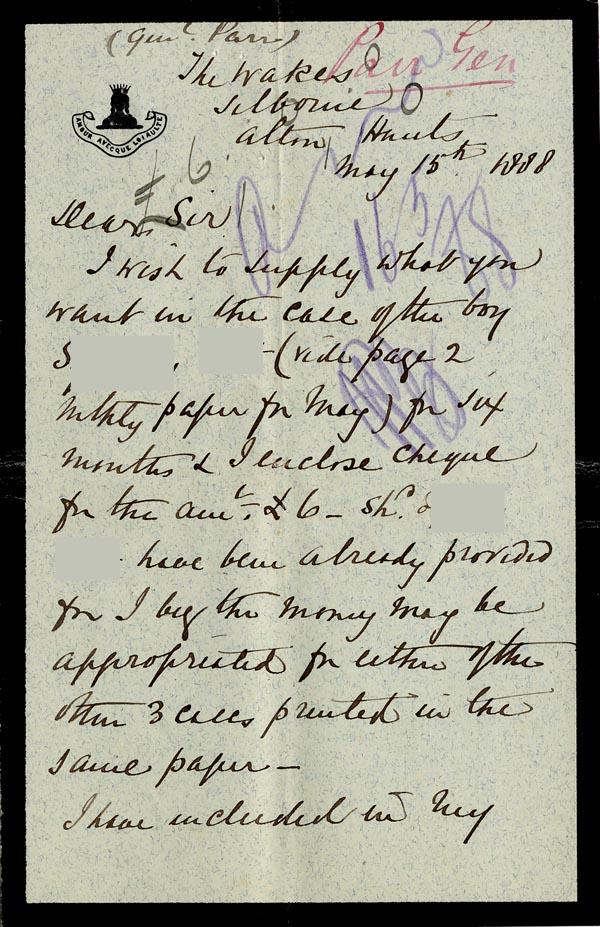 (Genl. Parr)
Parr Gen
The Wakes
Selborne
Alton Hants
May 15th 1888
AMOUR AVECQUE LOIAULTE
£6.
16 5 88
Dear Sir
I wish to supply what you
want in the case of the boy
S (vide page 2
Mthly paper for May) for six
months & I enclose cheque
for the amt. £6 – Shd. S
have been already provided
for I beg the money may be
appropriated for either of the
other 3 cases printed in the
same paper –
I have included in my